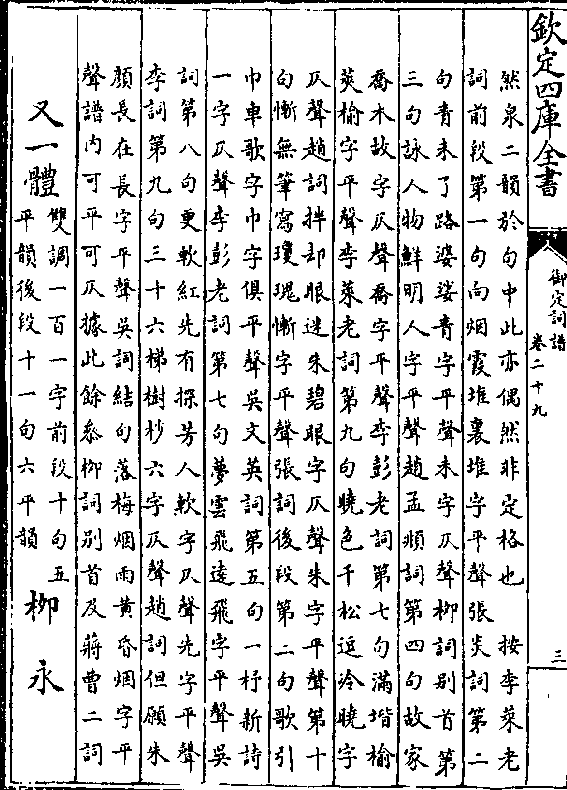 欽定四庫全書
御定詞譜
卷二十九
三
然泉二韻於句中此亦偶然非定格也　按李萊老
詞前段第一句向烟霞堆裏堆字平聲張炎詞第二
句青未了路婆娑青字平聲未字仄聲柳詞别首第
三句詠人物鮮明人字平聲趙孟頫詞第四句故家
喬木故字仄聲喬字平聲李彭老詞第七句滿堦榆
莢榆字平聲李萊老詞第九句曉色千松逗冷曉字
仄聲趙詞拌却眼迷朱碧眼字仄聲朱字平聲第十
句慚無筆寫瓊瑰慚字平聲張詞後段第二句歌引
巾車歌字巾字俱平聲吳文英詞第五句一杼新詩
一字仄聲李彭老詞第七句夢雲飛遠飛字平聲吳
詞第八句更軟紅先有探芳人軟字仄聲先字平聲
李詞第九句三十六梯樹杪六字仄聲趙詞但願朱
顔長在長字平聲吳詞結句落梅烟雨黄昏烟字平
聲譜内可平可仄據此餘叅柳詞别首及蔣曹二詞
又一體雙調一百一字前段十句五
平韻後段十一句六平韻　柳永